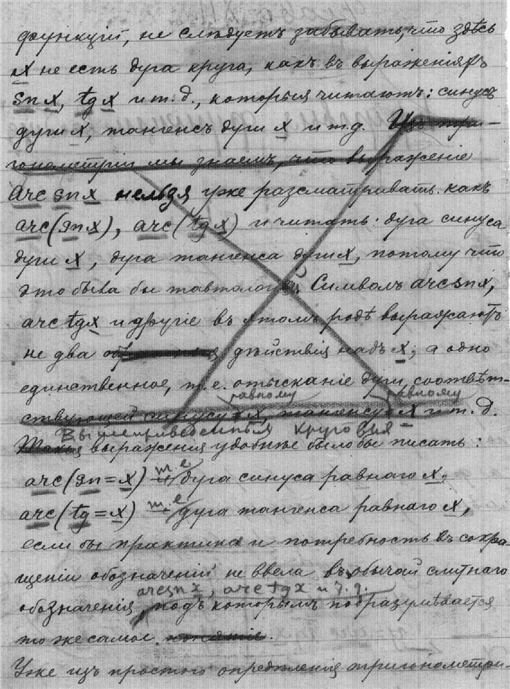 функцій, не слѣдуетъ забывать, что здѣсь
x не есть дуга круга, какъ въ выраженіяхъ
sn x, tg x и т.д., которыя читаютъ: синусъ
дуги x, тангенсъ дуги x и т.д. Изъ три-
гонометріи мы знаемъ, что выраженіе
arc sn x нельзя уже разсматривать какъ
arc(sn x), arc(tg x) и читать: дуга синуса
дуги x, дуга тангенса дуги x, потому что
это была бы тавтологія. Символъ arc sn x,
arc tg x и другіе въ этомъ родѣ выражаютъ
не два дѣйствія надъ x, а одно
единственное, т.е. отысканіе дуги, соотвѣт-
равному равному
ствующей синусу x, тангенсу x и т.д.
Вышеприведенныя круговыя
выраженія удобнѣе было бы писать:
arc(sn = x) т.е. дуга синуса равнаго x,
arc(tg = x) т.е. дуга тангенса равнаго x,
если бы практика и потребность въ сокра-
щеніи обозначеній не ввела въ обычай слитнаго
arc sn x, arc tg x и т.д.
обозначенія, подъ которымъ подразумѣвается
то же самое.
Уже изъ простого опредѣленія тригонометри-